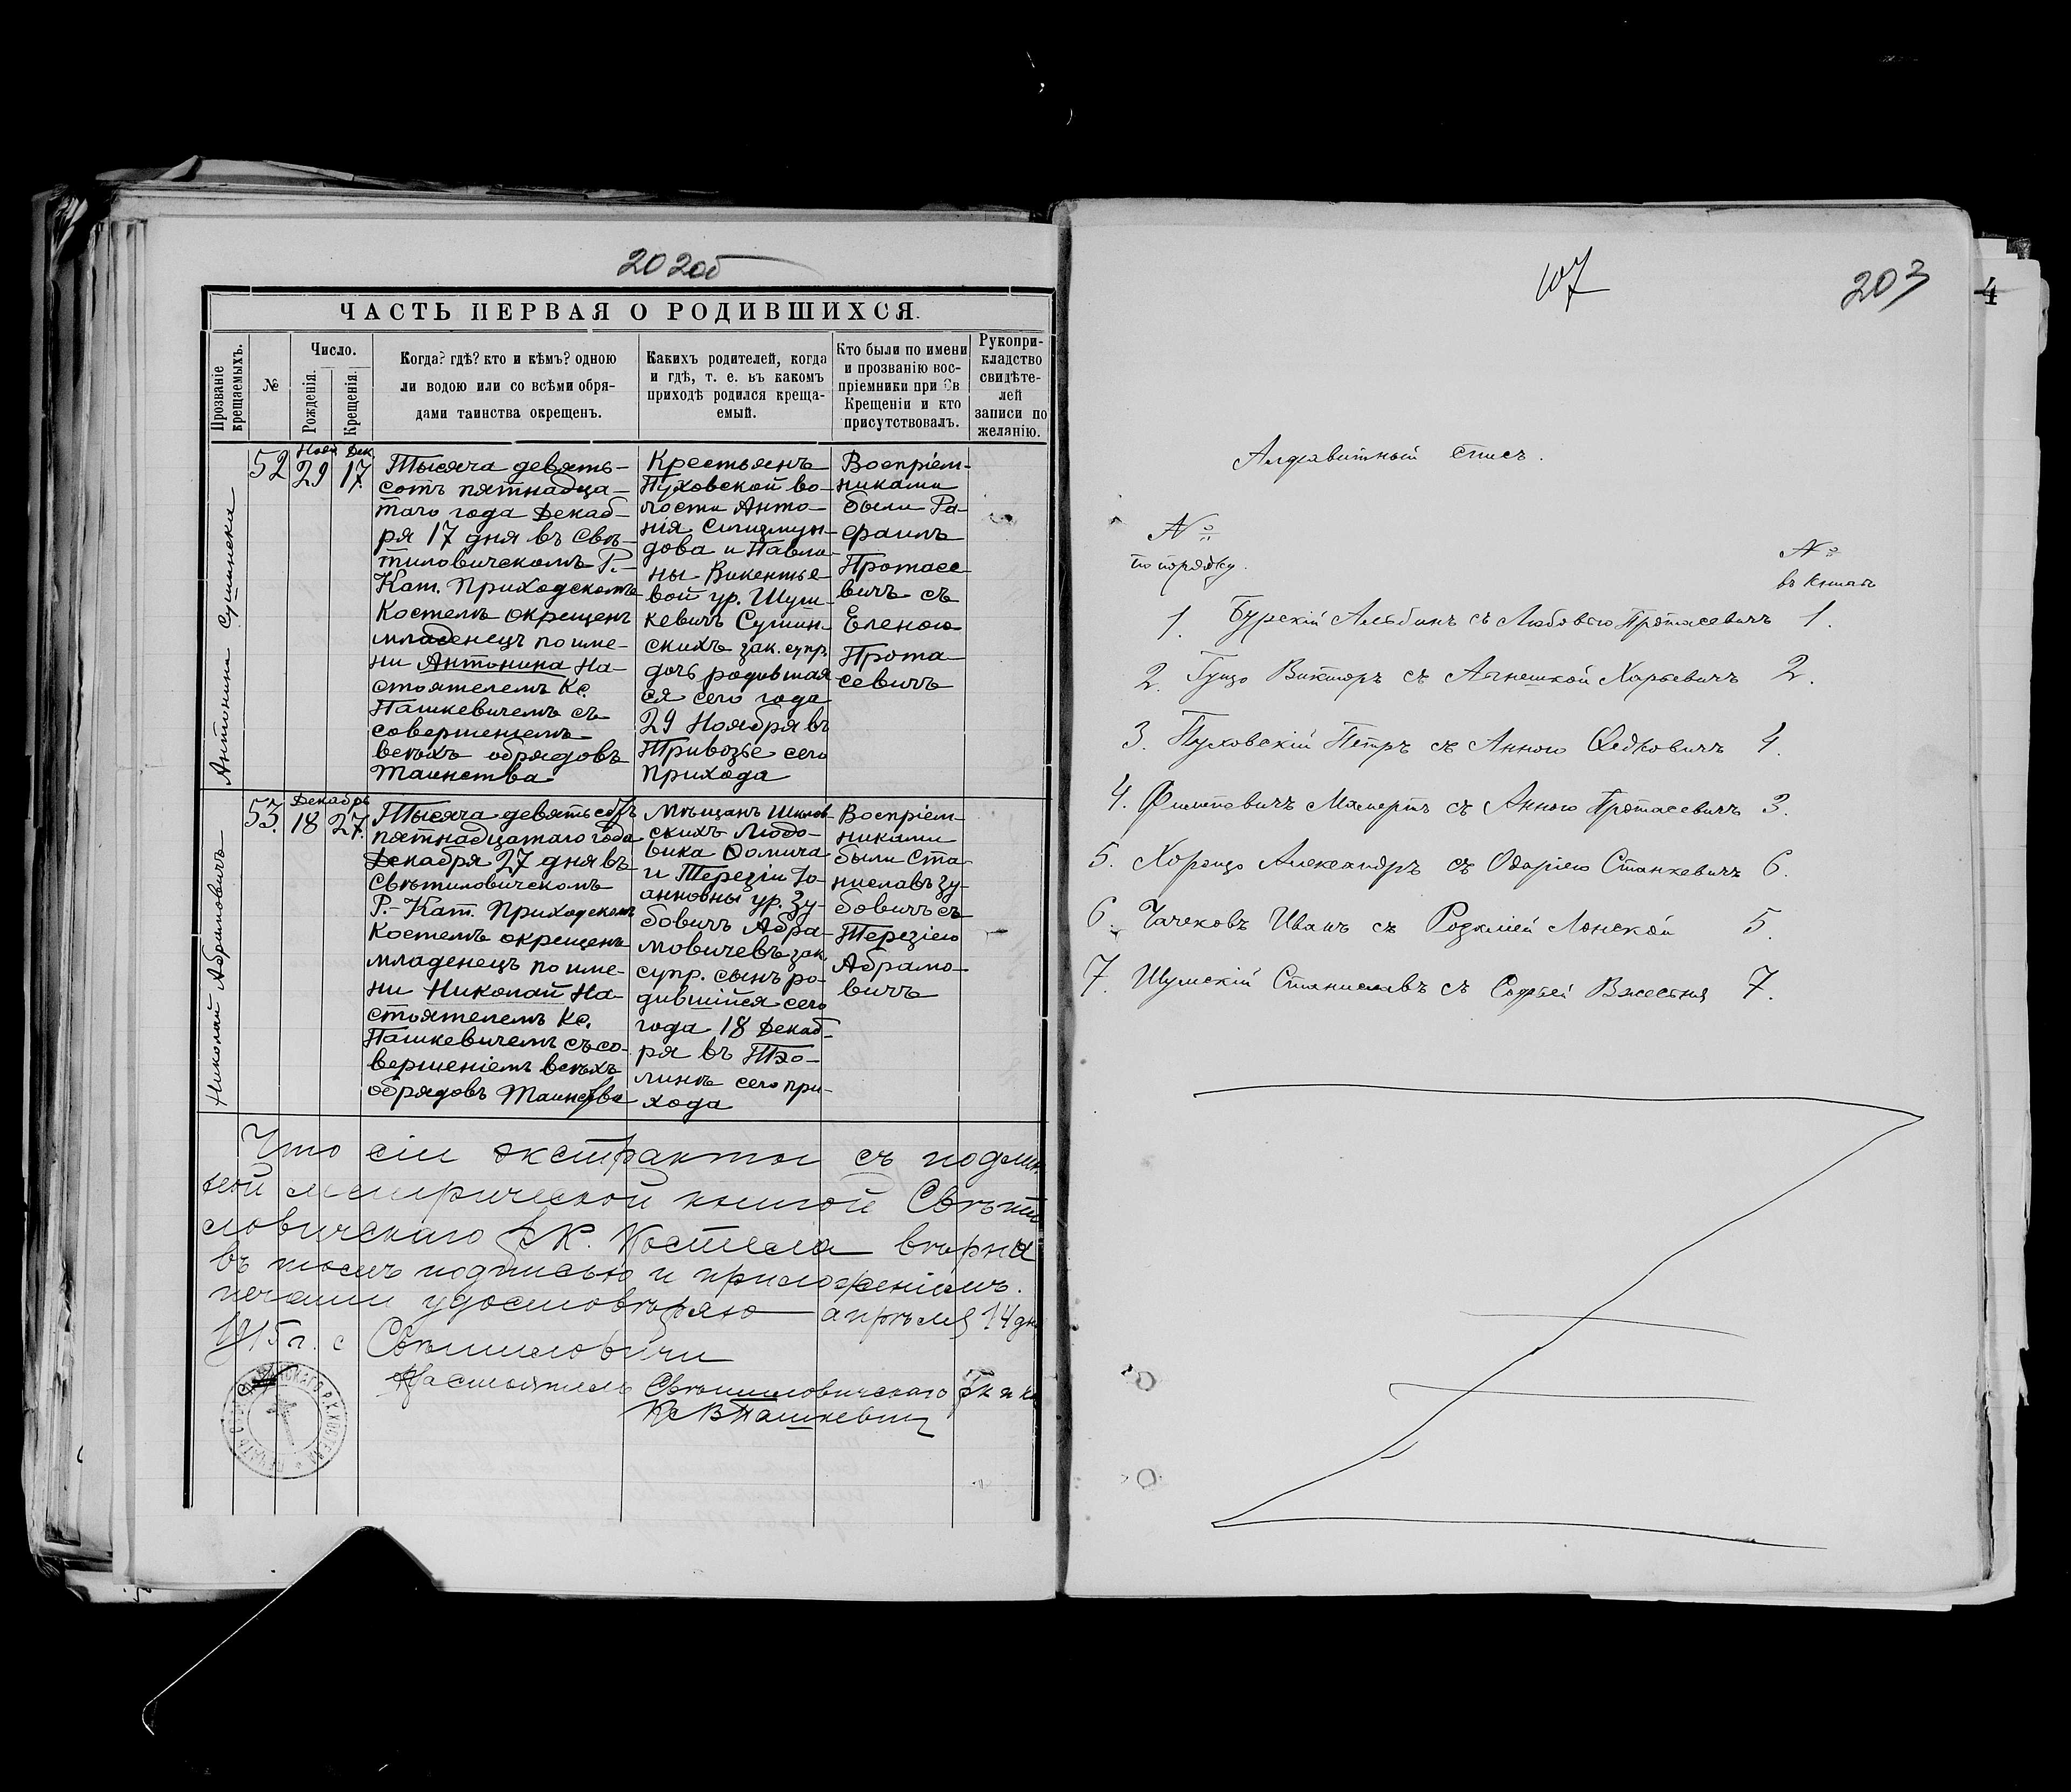 202об
ЧАСТЬ ПЕРВАЯ О РОДИВШИХСЯ.
Прозваніе крещаемыхъ.
№
Число.
Рожденія.
Крещенія.
Когда? гдѣ? кто и кѣмъ? одною
ли водою или со всѣми обря-
дами таинства окрещенъ.
Какихъ родителей, когда
и гдѣ, т. е. въ какомъ
приходѣ родился креща-
емый.
Кто были по имени
и прозванію вос-
пріемники при Св
Крещеніи и кто
присутствовалъ.
Рукопри-
кладство
свидѣте-
лей
записи по
желанію.
Антонина Сушинска
52
Нояб Дек
29 17
Тысяча девять-
сотъ пятнадца-
таго года Декаб-
ря 17 дня въ Свѣ-
тиловичскомъ Р.-
Кат. Приходскомъ
Костелѣ окрещенъ
младенецъ по име-
ни Антонина На-
стоятелемъ Кс.
Пашкевичемъ съ
совершеніемъ
всѣхъ обрядовъ
Таинства
Крестьянъ
Пуховской во-
лости Анто-
нія Сигизмун-
дова и Павли-
ны Викентье-
вой ур. Шуш-
кевичъ Сушин-
скихъ зак. супр.
дочь родившая
ся сего года
29 Ноября въ
Привозье сего
прихода
Воспріем-
никами
были Ра-
фаилъ
Протасе-
вичъ съ
Еленою
Прота-
севичъ
Николай Абрамовичъ
53.
Декабрь
18 27.
Тысяча девятьсотъ
пятнадцатаго года
Декабря 27 дня въ
Свѣтиловичскомъ
Р.-Кат. Приходскомъ
Костелѣ окрещенъ
младенецъ по име-
ни Николай На-
стоятелемъ Кс.
Пашкевичемъ съ со-
вершеніемъ всѣхъ
обрядовъ Таинства
Мѣщанъ Шклов-
скихъ Людо-
вика Ѳомича
и Терезіи Іо-
анновны ур. Зу-
бовичъ Абра-
мовичевъ зак.
супр. сынъ ро-
дившійся сего
года 18 Декаб-
ря въ
сего при-
хода
Воспріем-
никами
были Ста-
ниславъ Зу-
бовичъ съ
Терезіею
Абрамо-
вичъ
Что сіи экстракты съ подлин
ной метрической книгой Свѣти
ловичскаго Р.К. Костела вѣрна
въ томъ подписью и приложеніемъ
печати удостовѣряю апрѣля 14 дня
1915 г. с Свѣтиловичи
Настоятель Свѣтиловичскаго
Кс В Пашкевичъ
107
203
4
Алфавитный спись.
№
по порядку.
№
въ книгѣ
1. Бурскій Альбинъ съ Любовью Протасевичъ 1.
2. Гуцо Викторъ съ Агнешкой Харевичъ 2.
3. Пуховскій Петръ съ Анною Федковичъ 4.
4. Филиповичъ Мамертъ съ Анною Протасевичъ 3.
5. Хоронцо Александръ съ Одаріею Станкевичъ 6.
6. Чачковъ Иванъ съ Розаліей Лонской 5.
7. Шумскій Станиславъ съ Софіей 7.